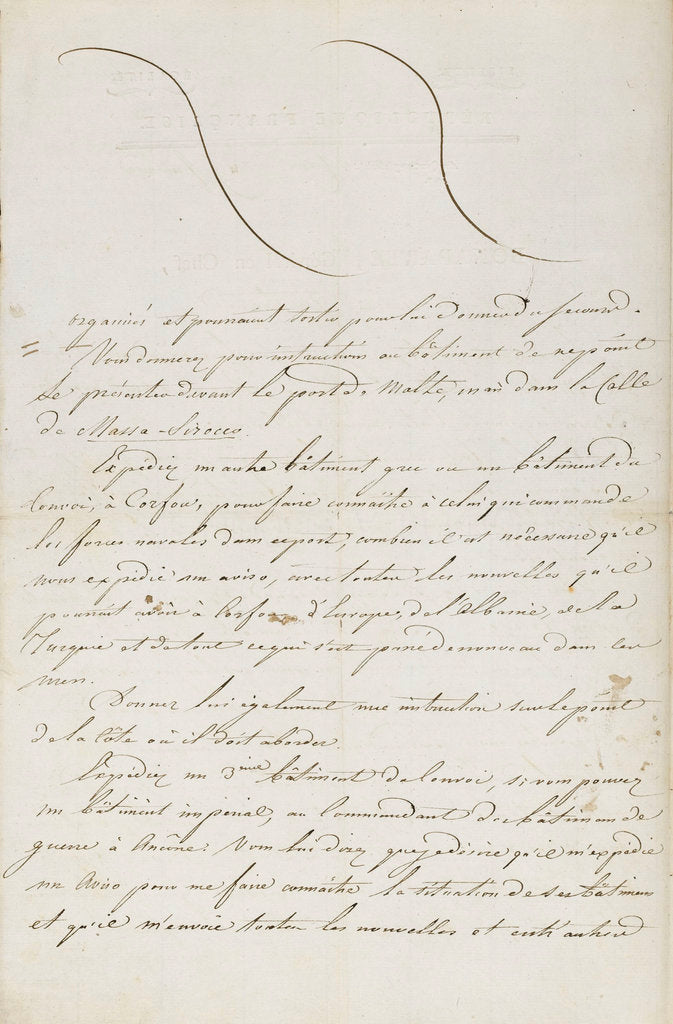 organisés et pourraient sortir pour lui donner du secours.
Vous donnerez pour instructions au bâtiment de ne point
se présenter devant le port de Malthe, mais dans la Calle
de Massa-Sirocco.
Expédiez un autre bâtiment grec ou un bâtiment du
Convoi, à Corfou, pour faire connaître à celui qui commande
les forces navales dans ce port, combien il est nécessaire qu'il
nous expédie un aviso, avec toutes les nouvelles qu'il
pourrait avoir à Corfou d'Europe, de l'Albanie, de la
Turquie et de tout ce qui s'est passé de nouveau dans les
mers.
Donnez lui également une instruction sur le point
de la Côte où il doit aborder.
Expédiez un 3ème bâtiment du Convoi, si vous pouvez
un bâtiment impérial, au Commandant des bâtimens de
guerre à Ancône: Vous lui direz que je désire qu'il m'expédie
un Aviso pour me faire connaître la situation de ses bâtimens
et qu'il m'envoie toutes les nouvelles et entr'autres